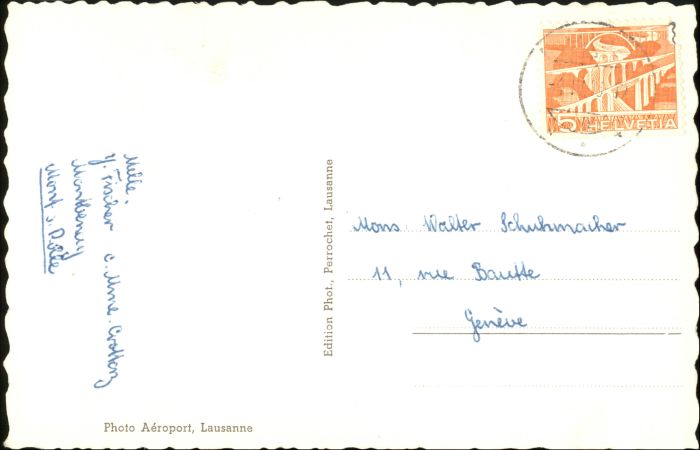 Mlle.
Y. Fischer c. Mme. Crottaz
Montheney
Mont s. Rolle
Edition Phot., Perrochet, Lausanne
5 HELVETIA
Mons Walter Schuhmacher
11, rue Bautte
Genève
Photo Aéroport, Lausanne